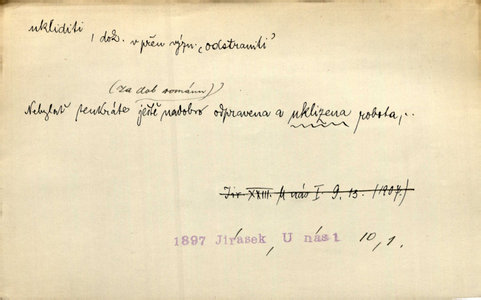 ukliditi, dok. v přen. význ. „odstraniti"
(za dob románu)
Nebylať tenkráte ještě nadobro odpravena a uklizena robota,..
Jir. XXIII. U nás I. 9. 13. (1904.)
1897 Jirásek, U nás 1 10,1.